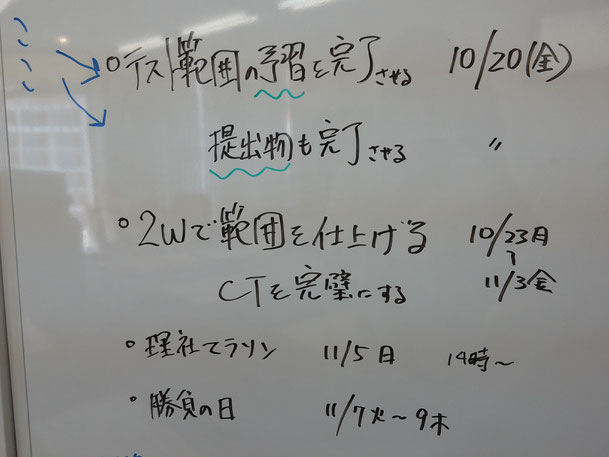 ここ
○テスト範囲の予習を完了させる 10/20(金)
提出物も完了させる 〃
○2Wで範囲を仕上げる 10/23月
〜
CTを完璧にする 11/3金
○理社マラソン 11/5日 14時〜
○勝負の日 11/7火〜9木